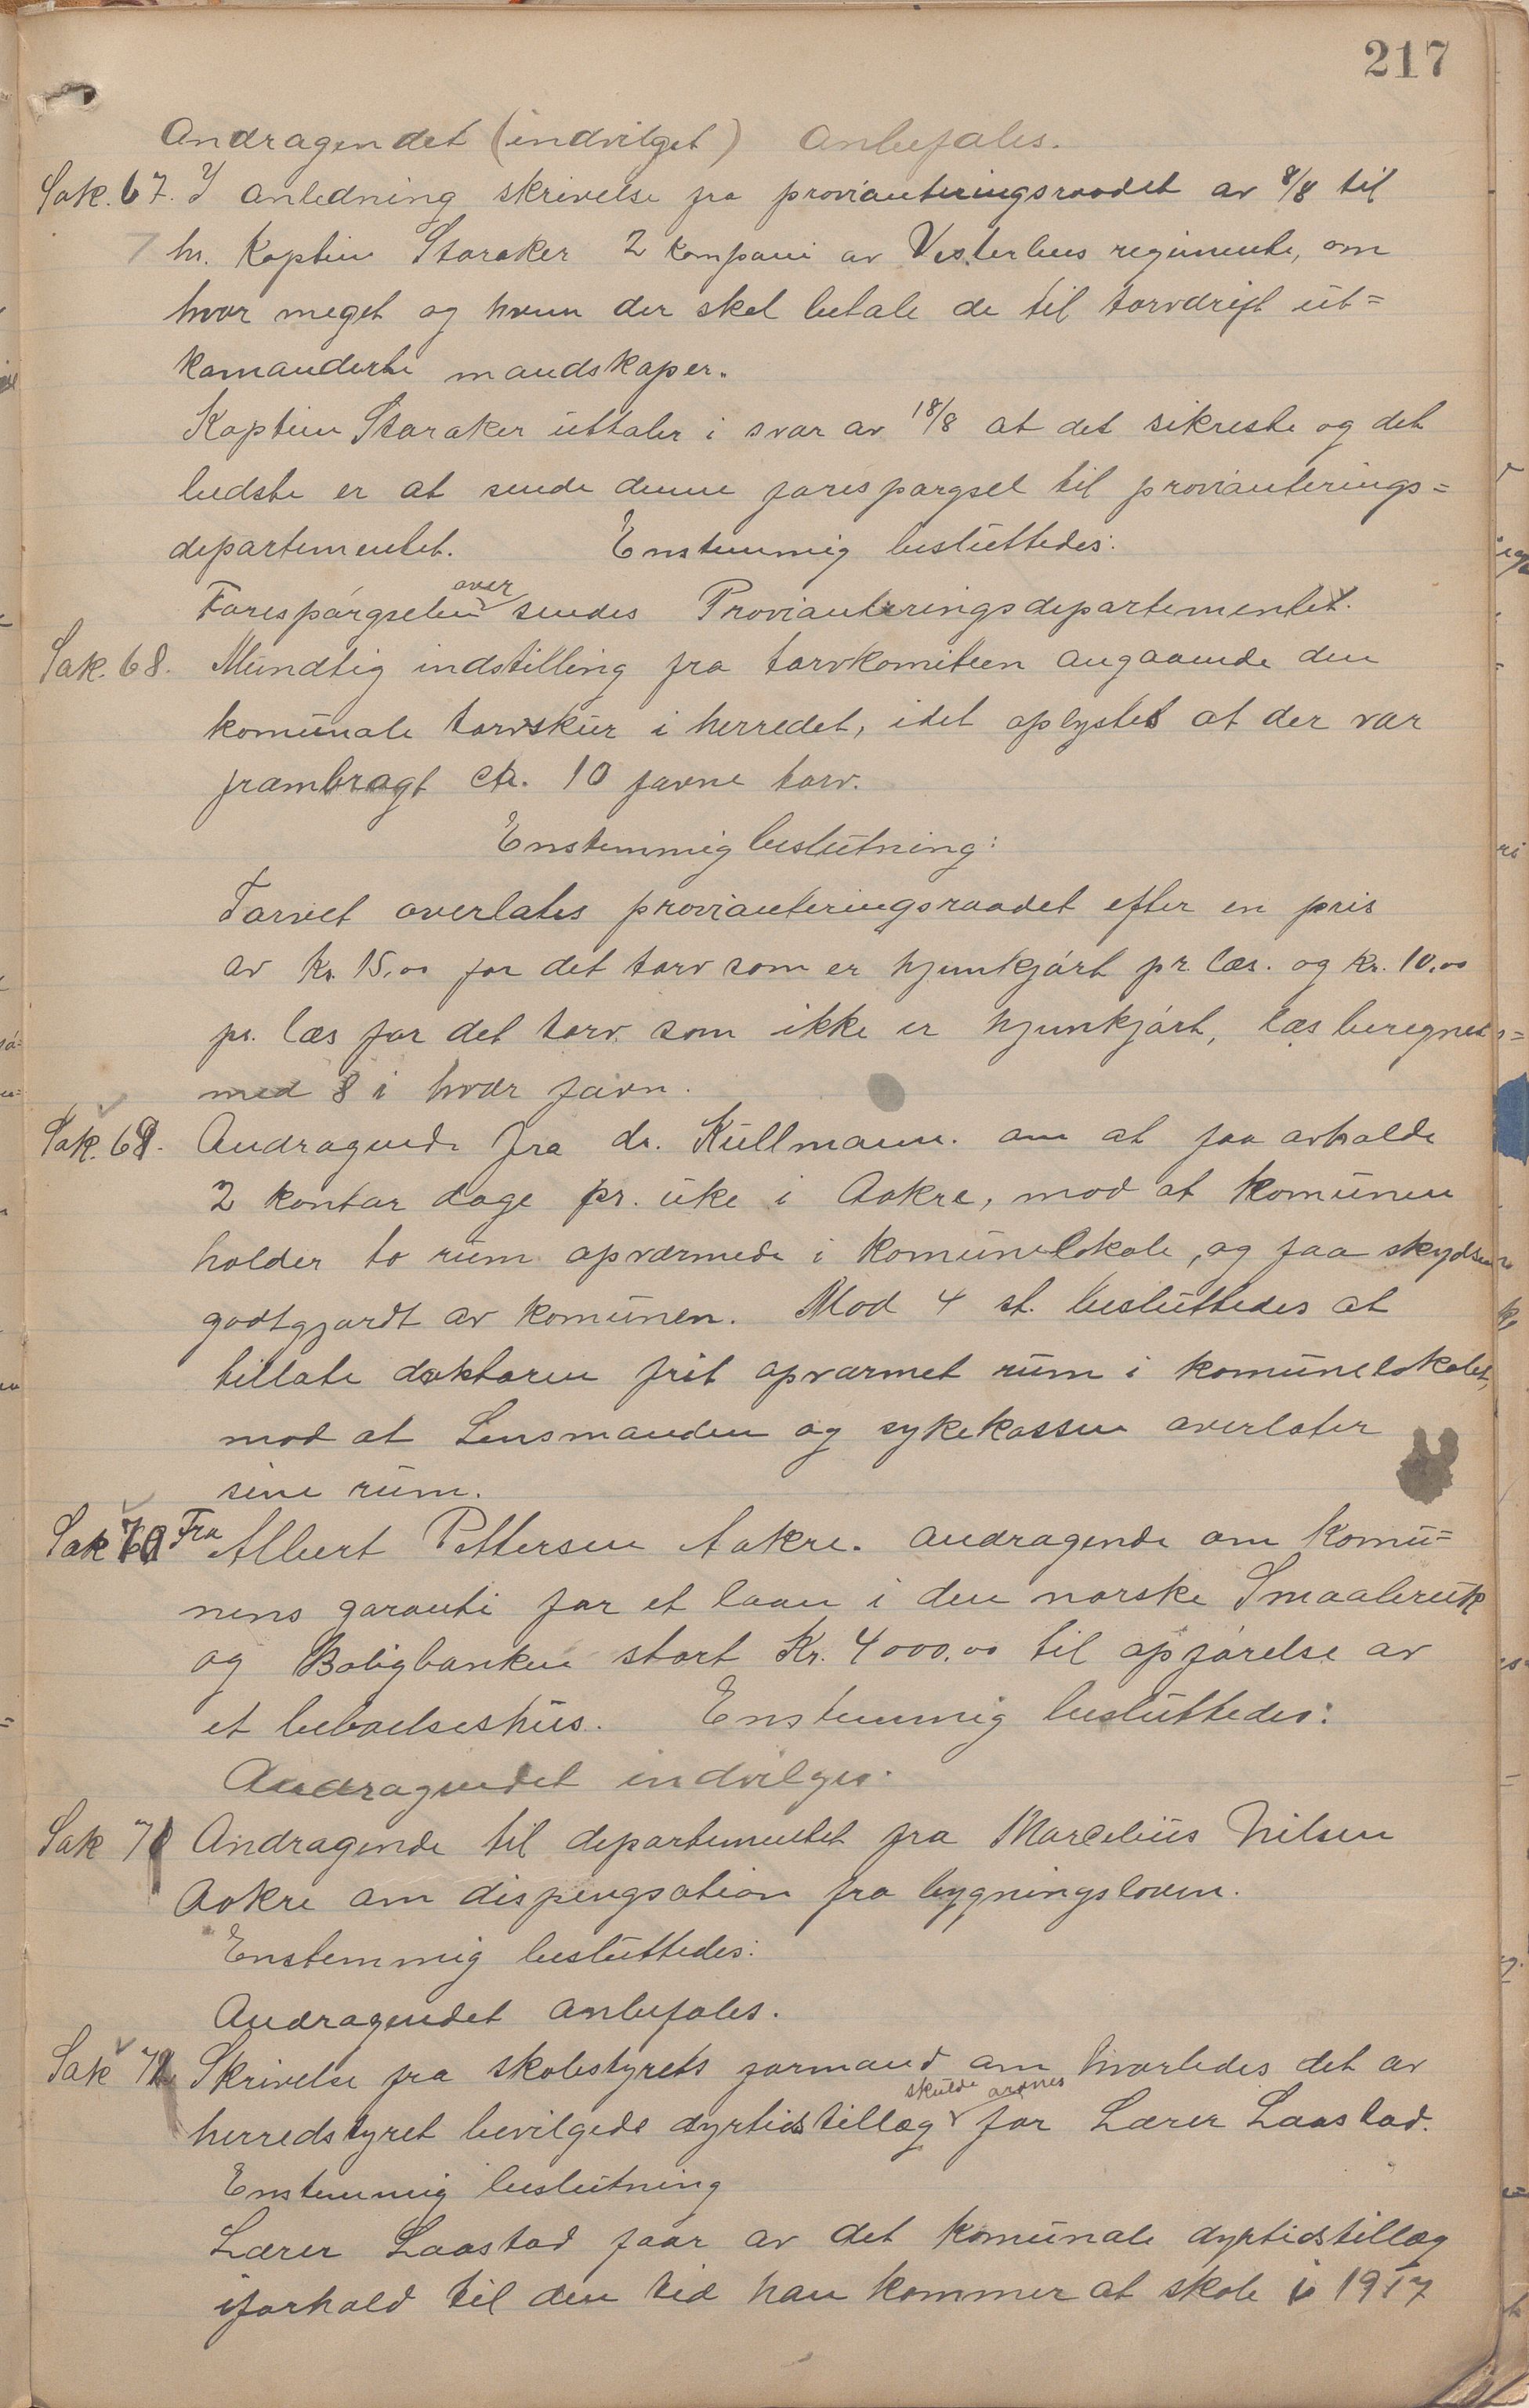 217
Andragendet (indvilget) Anbefales.
Sak. 67. I anledning skrivelse fra provianteringsraadet av 8/8 til
hr. Kaptein Staraker 2 kompani av Vesterlens regimente, om
hvor meget og hvem der skal betale de til torvdrift ut=
komanderte mandskaper.
Kaptein Staraker uttaler i svar av 18/8 at det sikreste og det
bedste er at sende denne forespørgsel til provianterings=
departementet. Enstemmig besluttedes:
Forespørgselen over sendes Provianteringsdepartementet.
Sak. 68. Mundtlig indstilling fra torvkomiteen angaaende den
komunale torvskur i herredet, idet oplystes at der var
frambragt ca. 10 favne torv.
Enstemmig beslutning:
Torvet overlates provianteringsraadet efter en pris
av kr. 15,00 for det torv som er hjemkjørt pr. læs. og kr. 10,00
pr. læs for det torv som ikke er hjemkjørt, læs beregnes
med 8 i hvær favn.
Sak. 69. Andragende fra dr. Kullmann. om at faa avholde
2 kontor dage pr. uke i Aakre, mod at komunen
holder to rum opvarmede i komunelokale, og faa skydsen
godtgjordt av komunen. Mod 4 st. besluttedes at
tillate doktoren frit opvarmet rum i komunelokalet,
mod at Lensmanden og sykekassen overlater
sine rum.
Sak 70 Fra Albert Pettersen Aakre. andragende om Komu=
nens garanti for et laan i den norske Smaabruk
og Boligbanken stort Kr. 4000.00 til opførelse av
et beboelseshus. Enstemmig besluttedes:
Andragendet indvilges.
Sak 71 Andragende til departementet fra Marcelius Nilsen
Aakre om dispengsation fra bygningsloven.
Enstemmig besluttedes:
Andragendet anbefales.
Sak 72 Skrivelse fra skolestyrets formand om hvorledes det av
skulde ordnes
herredstyret bevilgede dyrtidstillæg for Lærer Laastad.
Enstemmig beslutning
Lærer Laastad faar av det komunale dyrtidstillæg
iforhold til den tid han kommer at skole i 1917